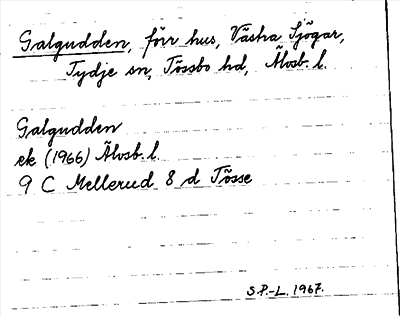 Galgudden, förr hus, Västra Sjögar,
Tydje sn, Tössbo hd, Älvsb. l.
Galgudden
ek (1966) Älvsb. l.
9 C Mellerud 8 d Tösse
S.P.-L. 1967.